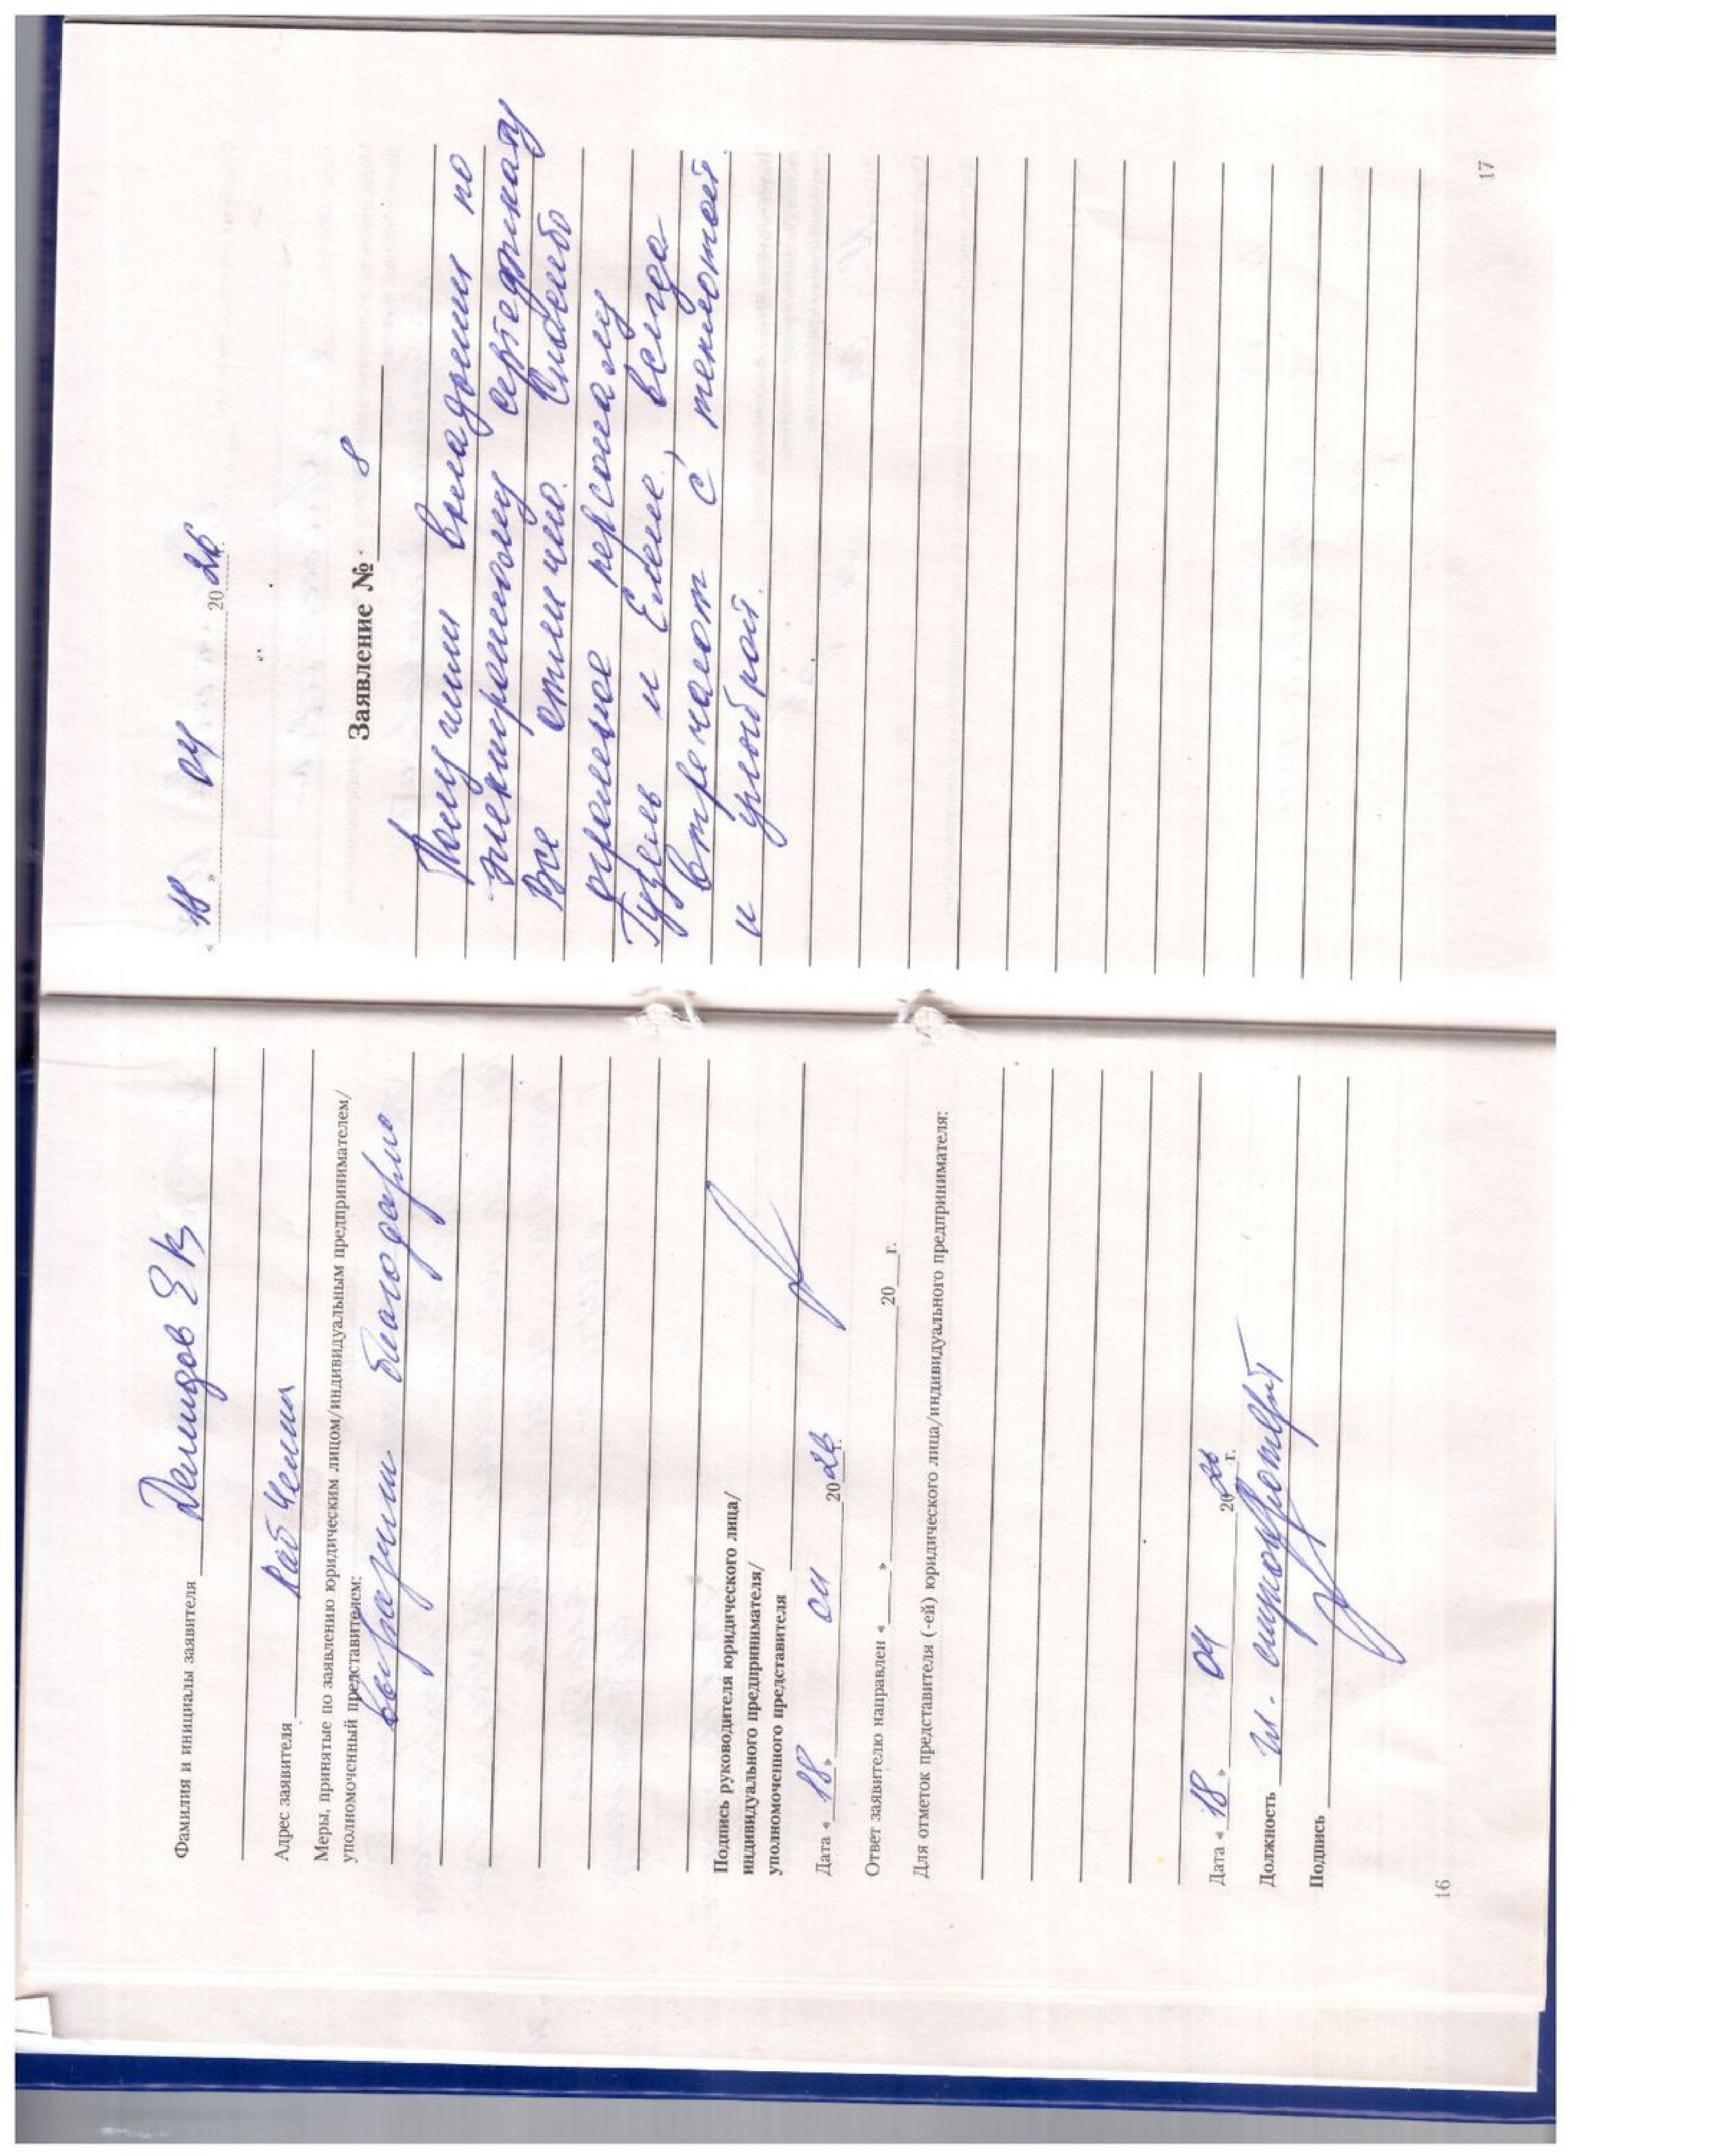 Фамилия и инициалы заявителя Демидов Е В
Адрес заявителя Наб Челны
Меры, принятые по заявлению юридическим лицом/индивидуальным предпринимателем/
уполномоченный представителем:
выразили благодарно
Подпись руководителя юридического лица/
индивидуального предпринимателя/
уполномоченного представителя
Дата « 18 » 04 2026 г.
Ответ заявителю направлен « ___ » ___ 20___г.
Для отметок представителя (-ей) юридического лица/индивидуального предпринимателя:
Дата « 18 » 04 2026 г.
Должность
Подпись
16
« 18 » 04 2026
Заявление № 8
Получили вкладыши по
электронному сертификату
Все отлично. Спасибо
огромное персоналу
Гузель и Елене, всегда
встречают с теплотой
и улыбкой.
17